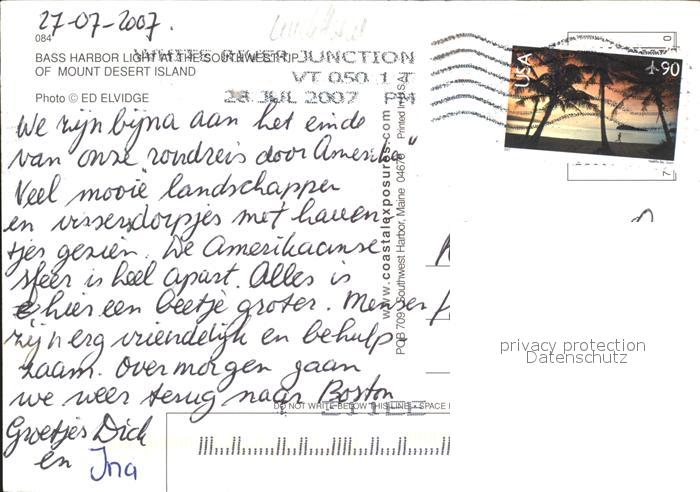 27-07-2007.
084
BASS HARBOR LIGHT AT THE SOUTHWEST TIP
OF MOUNT DESERT ISLAND
Photo © ED ELVIDGE
WHITE RIVER JUNCTION
VT 050 1 T
28 JUL 2007 PM
USA
90
We zijn bijna aan het einde
van "onze rondreis door Amerika"
Veel mooie landschappen
en vissersdorpjes met haven-
tjes gezien. De Amerikaanse
sfeer is heel apart. Alles is
hier een beetje groter. Mensen
zijn erg vriendelijk en behulp-
zaam. Overmorgen gaan
we weer terug naar Boston
Groetjes Dick
en Ina
www.coastalexposures.com
POB 709 Southwest Harbor, Maine 04679 Printed in USA
DO NOT WRITE BELOW THIS LINE • SPACE
privacy protection
Datenschutz